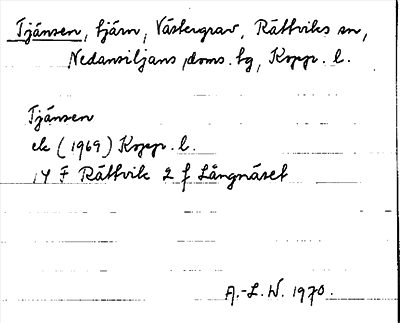 Tjänsen, tjärn, Västergrav, Rättviks sn,
Nedansiljans doms. tg, Kopp. l.
Tjänsen
ek (1969) Kopp. l.
14 F Rättvik 2 f Långnäset
A.-L. W. 1970.